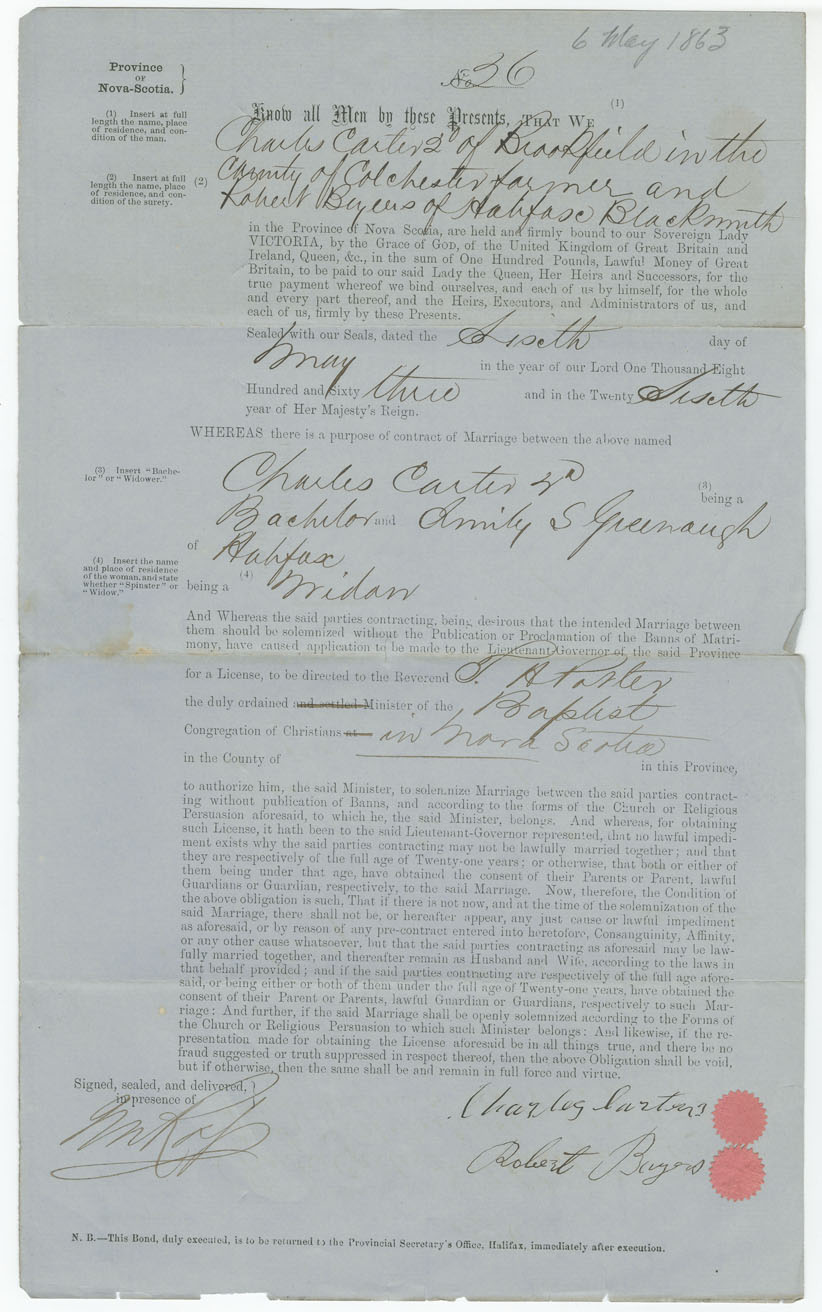 6 May 1863
Province
OF
Nova-Scotia.
No 36
(1) Insert at full
length the name, place
of residence, and con-
dition of the man.
Know all Men by these Presents, THAT WE (1)
Charles Carter 2d of Brookfield in the
(2) Insert at full
length the name, place
of residence, and con-
dition of the surety.
(2) County of Colchester farmer and
Robert Buyers of Halifax Blacksmith
in the Province of Nova Scotia, are held and firmly bound to our Sovereign Lady
VICTORIA, by the Grace of GOD, of the United Kingdom of Great Britain and
Ireland, Queen, &c., in the sum of One Hundred Pounds, Lawful Money of Great
Britain, to be paid to our said Lady the Queen, Her Heirs and Successors, for the
true payment whereof we bind ourselves, and each of us by himself, for the whole
and every part thereof, and the Heirs, Executors, and Administrators of us, and
each of us, firmly by these Presents.
Sealed with our Seals, dated the Sixth day of
May in the year of our Lord One Thousand Eight
Hundred and Sixty three and in the Twenty Sixth
year of Her Majesty's Reign.
WHEREAS there is a purpose of contract of Marriage between the above named
(3) Insert "Bache-
lor" or "Widower."
Charles Carter 2d (3) being a
Bachelor and Emily S Greenaugh
of Halifax
(4) Insert the name
and place of residence
of the woman, and state
whether "Spinster" or
"Widow."
being a (4) Widow
And Whereas the said parties contracting, being desirous that the intended Marriage between
them should be solemnized without the Publication or Proclamation of the Banns of Matri-
mony, have caused application to be made to the Lieutenant-Governor of the said Province
for a License, to be directed to the Reverend T. H Porter
the duly ordained and settled Minister of the Baptist
Congregation of Christians at in Nova Scotia
in the County of in this Province,
to authorize him, the said Minister, to solemnize Marriage between the said parties contract-
ing without publication of Banns, and according to the forms of the Church or Religious
Persuasion aforesaid, to which he, the said Minister, belongs. And whereas, for obtaining
such License, it hath been to the said Lieutenant-Governor represented, that no lawful impedi-
ment exists why the said parties contracting may not be lawfully married together; and that
they are respectively of the full age of Twenty-one years; or otherwise, that both or either of
them being under that age, have obtained the consent of their Parents or Parent, lawful
Guardians or Guardian, respectively, to the said Marriage. Now, therefore, the Condition of
the above obligation is such, That if there is not now, and at the time of the solemnization of the
said Marriage, there shall not be, or hereafter appear, any just cause or lawful impediment
as aforesaid, or by reason of any pre-contract entered into heretofore, Consanguinity, Affinity,
or any other cause whatsoever, but that the said parties contracting as aforesaid may be law-
fully married together, and thereafter remain as Husband and Wife, according to the laws in
that behalf provided; and if the said parties contracting are respectively of the full age afore-
said, or being either or both of them under the full age of Twenty-one years, have obtained the
consent of their Parent or Parents, lawful Guardian or Guardians, respectively to such Mar-
riage: And further, if the said Marriage shall be openly solemnized according to the Forms of
the Church or Religious Persuasion to which such Minister belongs: And likewise, if the re-
presentation made for obtaining the License aforesaid be in all things true, and there be no
fraud suggested or truth suppressed in respect thereof, then the above Obligation shall be void,
but if otherwise, then the same shall be and remain in full force and virtue.
Signed, sealed, and delivered,
in presence of
Charles Carter
Robert Buyers
N. B.—This Bond, duly executed, is to be returned to the Provincial Secretary's Office, Halifax, immediately after execution.